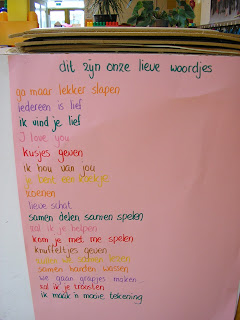 dit zijn onze lieve woordjes
ga maar lekker slapen
iedereen is lief
ik vind je lief
I love you
kusjes geven
ik hou van jou
je bent een koekje
zoenen
lieve schat
samen delen samen spelen
zal ik je helpen
kom je met me spelen
knuffeltjes geven
zullen we samen lezen
samen handen wassen
we gaan grapjes maken
zal ik je troosten
ik maak 'n mooie tekening